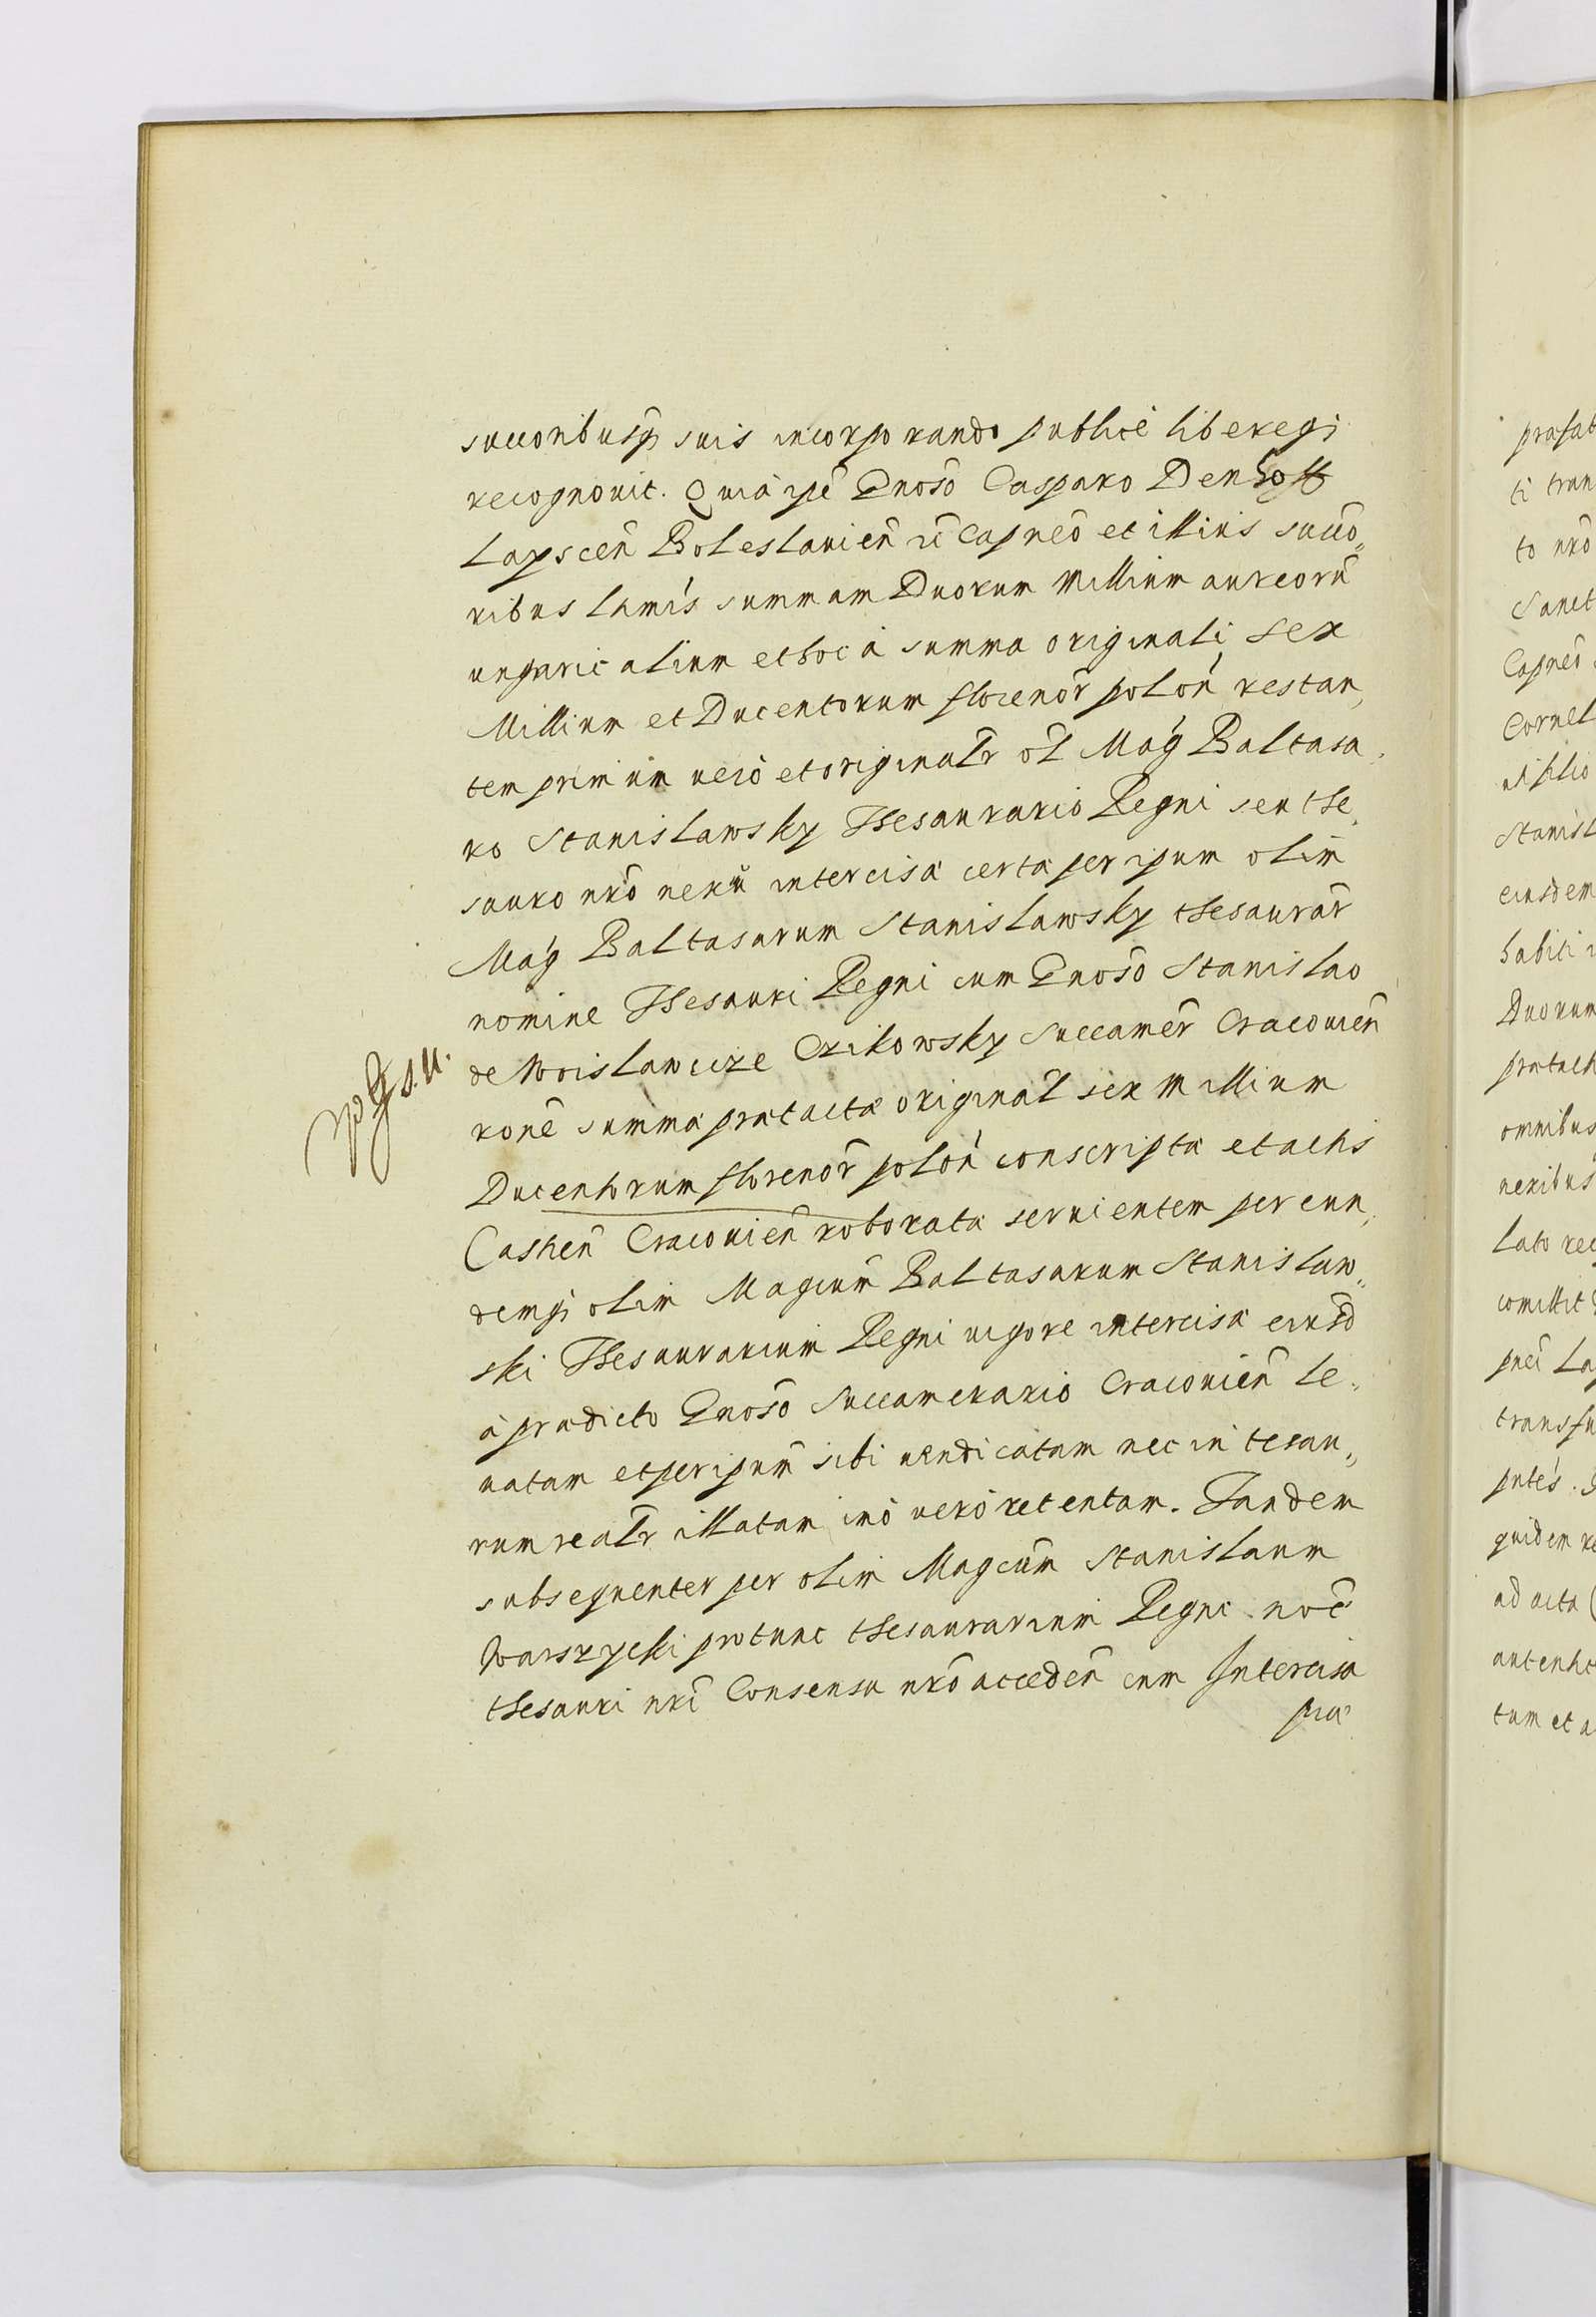 succoribusq̃ suis incorporando publicè libereqꝫ
recognovit. Quia ipē Gnoso Casparo Denhoff
Lapscen̄ Boleslauien̄ Capneo et illius succo„
ribus lamis summam Duorum Millium aureorū
ungaricalium et hoc à summa originali sex
Millium et Ducentorum florenor̄ polon̄ restan„
tem primum uero et originalr̄ ol̄ Mag Baltasa„
ro Stanislawsky Thesaurario Regni seu the„
sauro nrō nexu intercisa certa per ipsum olim
Mag Baltasarum Stanislawsky thesaurar̄
nomine Thesauri Regni cum Gnoso Stanislao
de Woislawicze Czikowsky Succamer̄ Cracouien̄
ronē summa prætacta original̄ sex Millium
Ducentorum florenor̄ polon̄ conscripta et actis
Castren̄ Cracouien̄ roborata seruientem per eun„
demqꝫ olim Magcum̄ Baltasarum Stanislaw„
ski Thesaurarium Regni uigore intercisa eiusd̄
à prædicto Gnoso Succamerario Cracouien̄ le„
uatam et per ipsum̄ sibi uendicatam nec in tesau„
rum realr̄ illatam imò uerò retentam. Tandem
subsequenter per olim Magcum̄ Stanislaum
Warszycki protunc thesaurarium Regni noē
thesauri nrī Consensu nrō acceden̄ cum Intercisa
præ
prafat
ti tran
to nrō
Sanct
Capneo
Cornel
Stanisl
eiusdem
habiti
Duorum
omnibus
nexibus
lato rec
transfu
quidem re
ad acta
tum et a